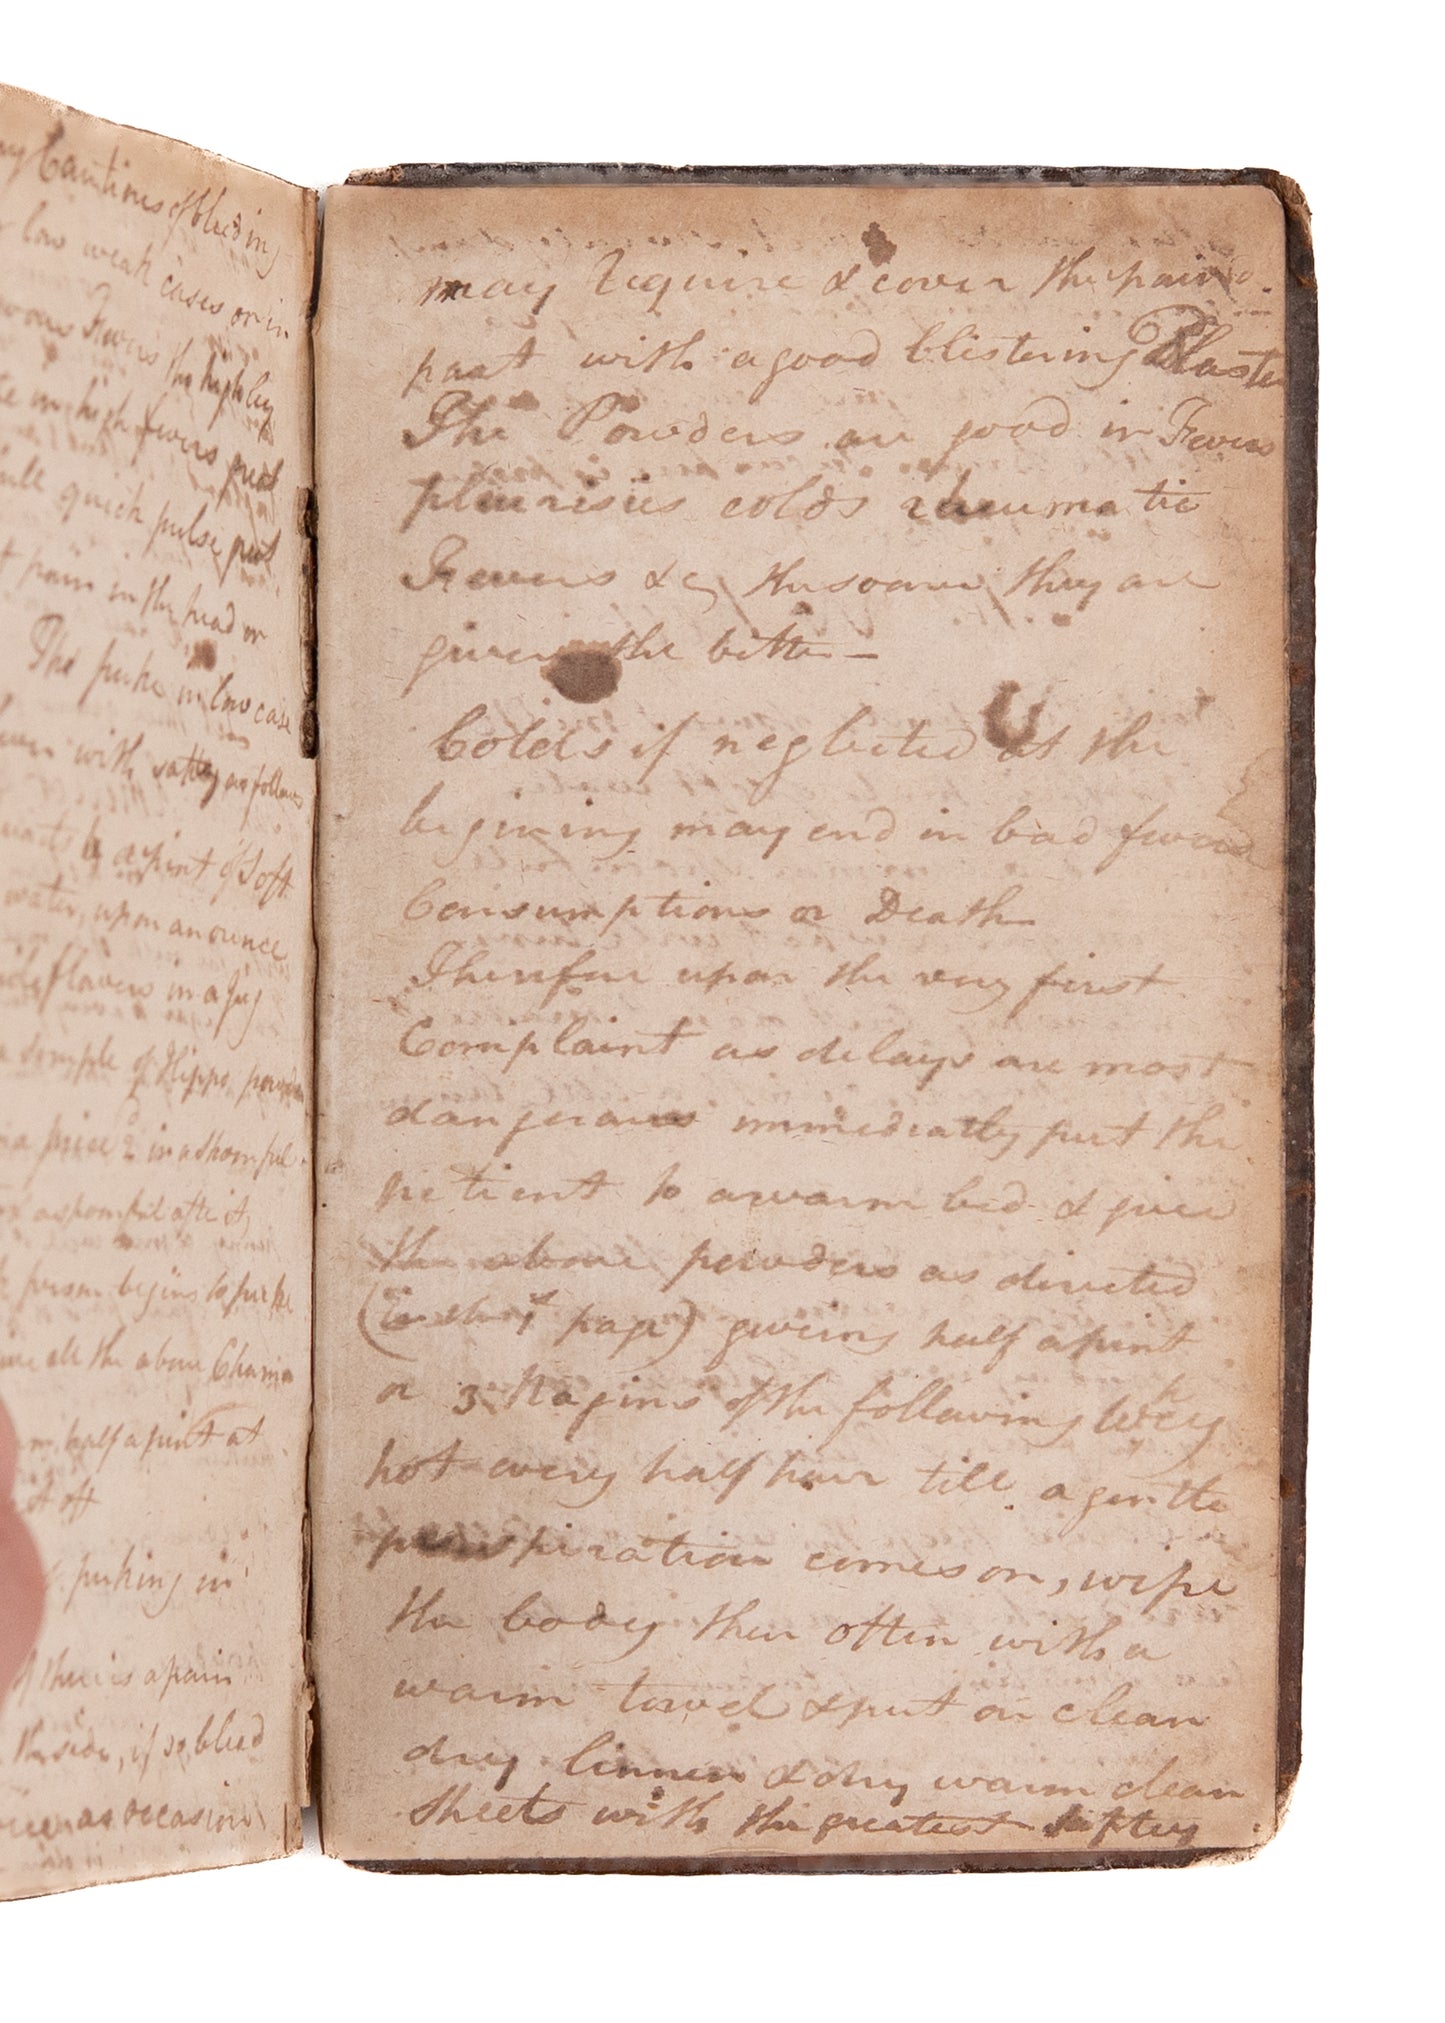 ny Cautious of bleeding
low weak cases or in
Fevers tho highly
in high fevers great
full quick pulse great
pain in the head or
The puke in low case
with safty as follows
a pint of Soft
water, upon an ounce
flowers in a Jug
of Hippo, powder
in a spoonful
a spoonful after it,
person begins to puke
all the above Chamo
half a pint at
it off
puking in
if there is a pain
the side, if so bleed
as occasion
may Require & cover the pain'd
part with a good blistering Plaster
The Powders are good in Fevers
pleurisies colds rheumatic
Fevers &c, the sooner they are
given the better —
Colds if neglected at the
begining may end in bad fevers
Consumptions or Death
Therefore upon the very first
Complaint as delays are most
dangerous immediately put the
patient to a warm bed & give
the above powders as directed
(in the 1st page) giveing half a pint
or 3 Nagins of the following Whey
hot every half hour till a gentle
perspiration comes on, wipe
the body then often with a
warm towel & put on clean
dry linnen & dry warm clean
sheets with the greatest safty